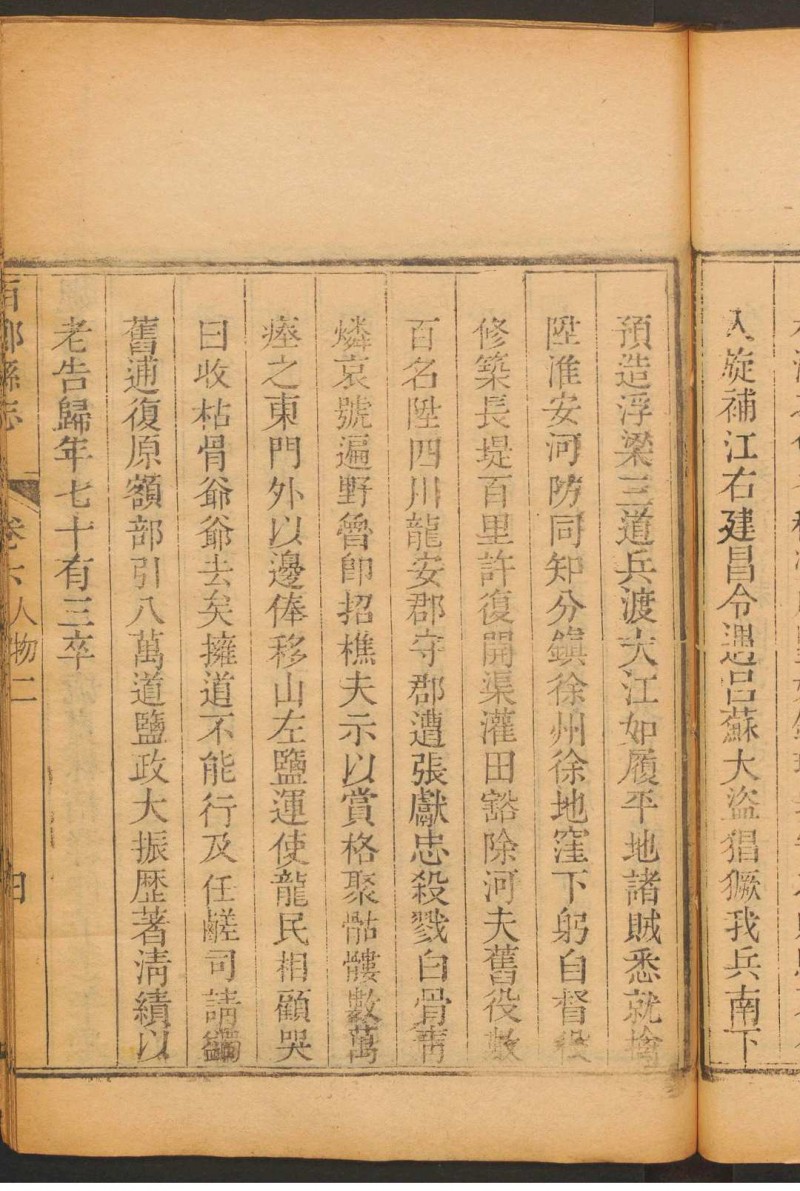 入旋補江右建昌令遇呂蘇大盜猖獗我兵南下
預造浮梁三道兵渡大江如履平地諸賊悉就擒
陞淮安河防同知分鎮徐州徐地窪下躬自督
修築長堤百里許復開渠灌田豁除河夫舊役數
百名陞四川龍安郡守郡遭張獻忠殺戮白骨靑
燐哀號遍野曾即招樵夫示以賞格聚骷髏數萬
瘞之東門外以邊俸移山左鹽運使龍民相顧哭
曰收枯骨爺爺去矣擁道不能行及任鹺司請蠲
舊逋復原額部引八萬道鹽政大振歴著淸績以
老告歸年七十有三卒
鄉縣志 卷六人物二